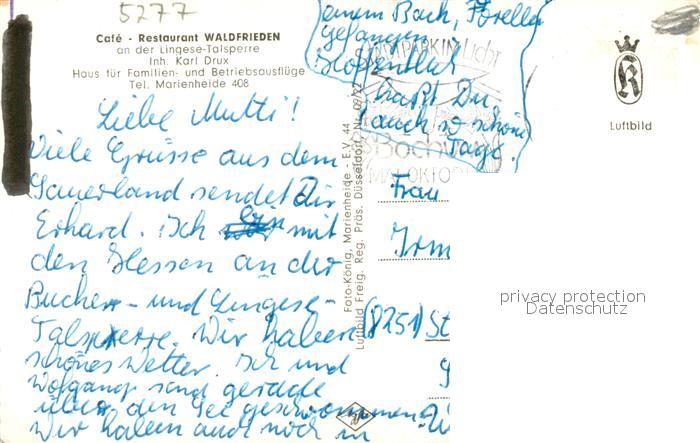 5277
Café - Restaurant WALDFRIEDEN
an der Lingese-Talsperre
Inh. Karl Drux
Haus für Familien- und Betriebsausflüge
Tel. Marienheide 408
Liebe Mutti!
Viele Grüsse aus dem
Sauerland sendet Dir
Erhard. Ich bin mit
den Hessen an der
Bucher- und Lingese-
Talsperre. Wir haben
schönes Wetter. Ich und
Wolfgang sind gerade
über den See geschwommen.
Wir haben auch noch in
einem Bach, Forellen
gefangen
Hoffentlich
hast Du
auch so schöne
Tage.
IM PARK IN Licht
Bochum
OKTO
Foto-König, Marienheide - E.V. 44
Luftbild Freig. Reg. Präs. Düsseldorf Nr. 09/22
Luftbild
Frau
Irm
(8251) St
privacy protection
Datenschutz